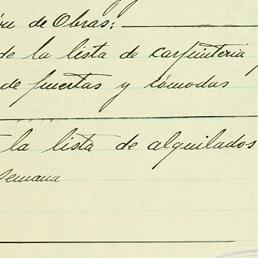 de Obras:
de la lista de carpintería
de puertas y cómodas
la lista de alquilados
semana